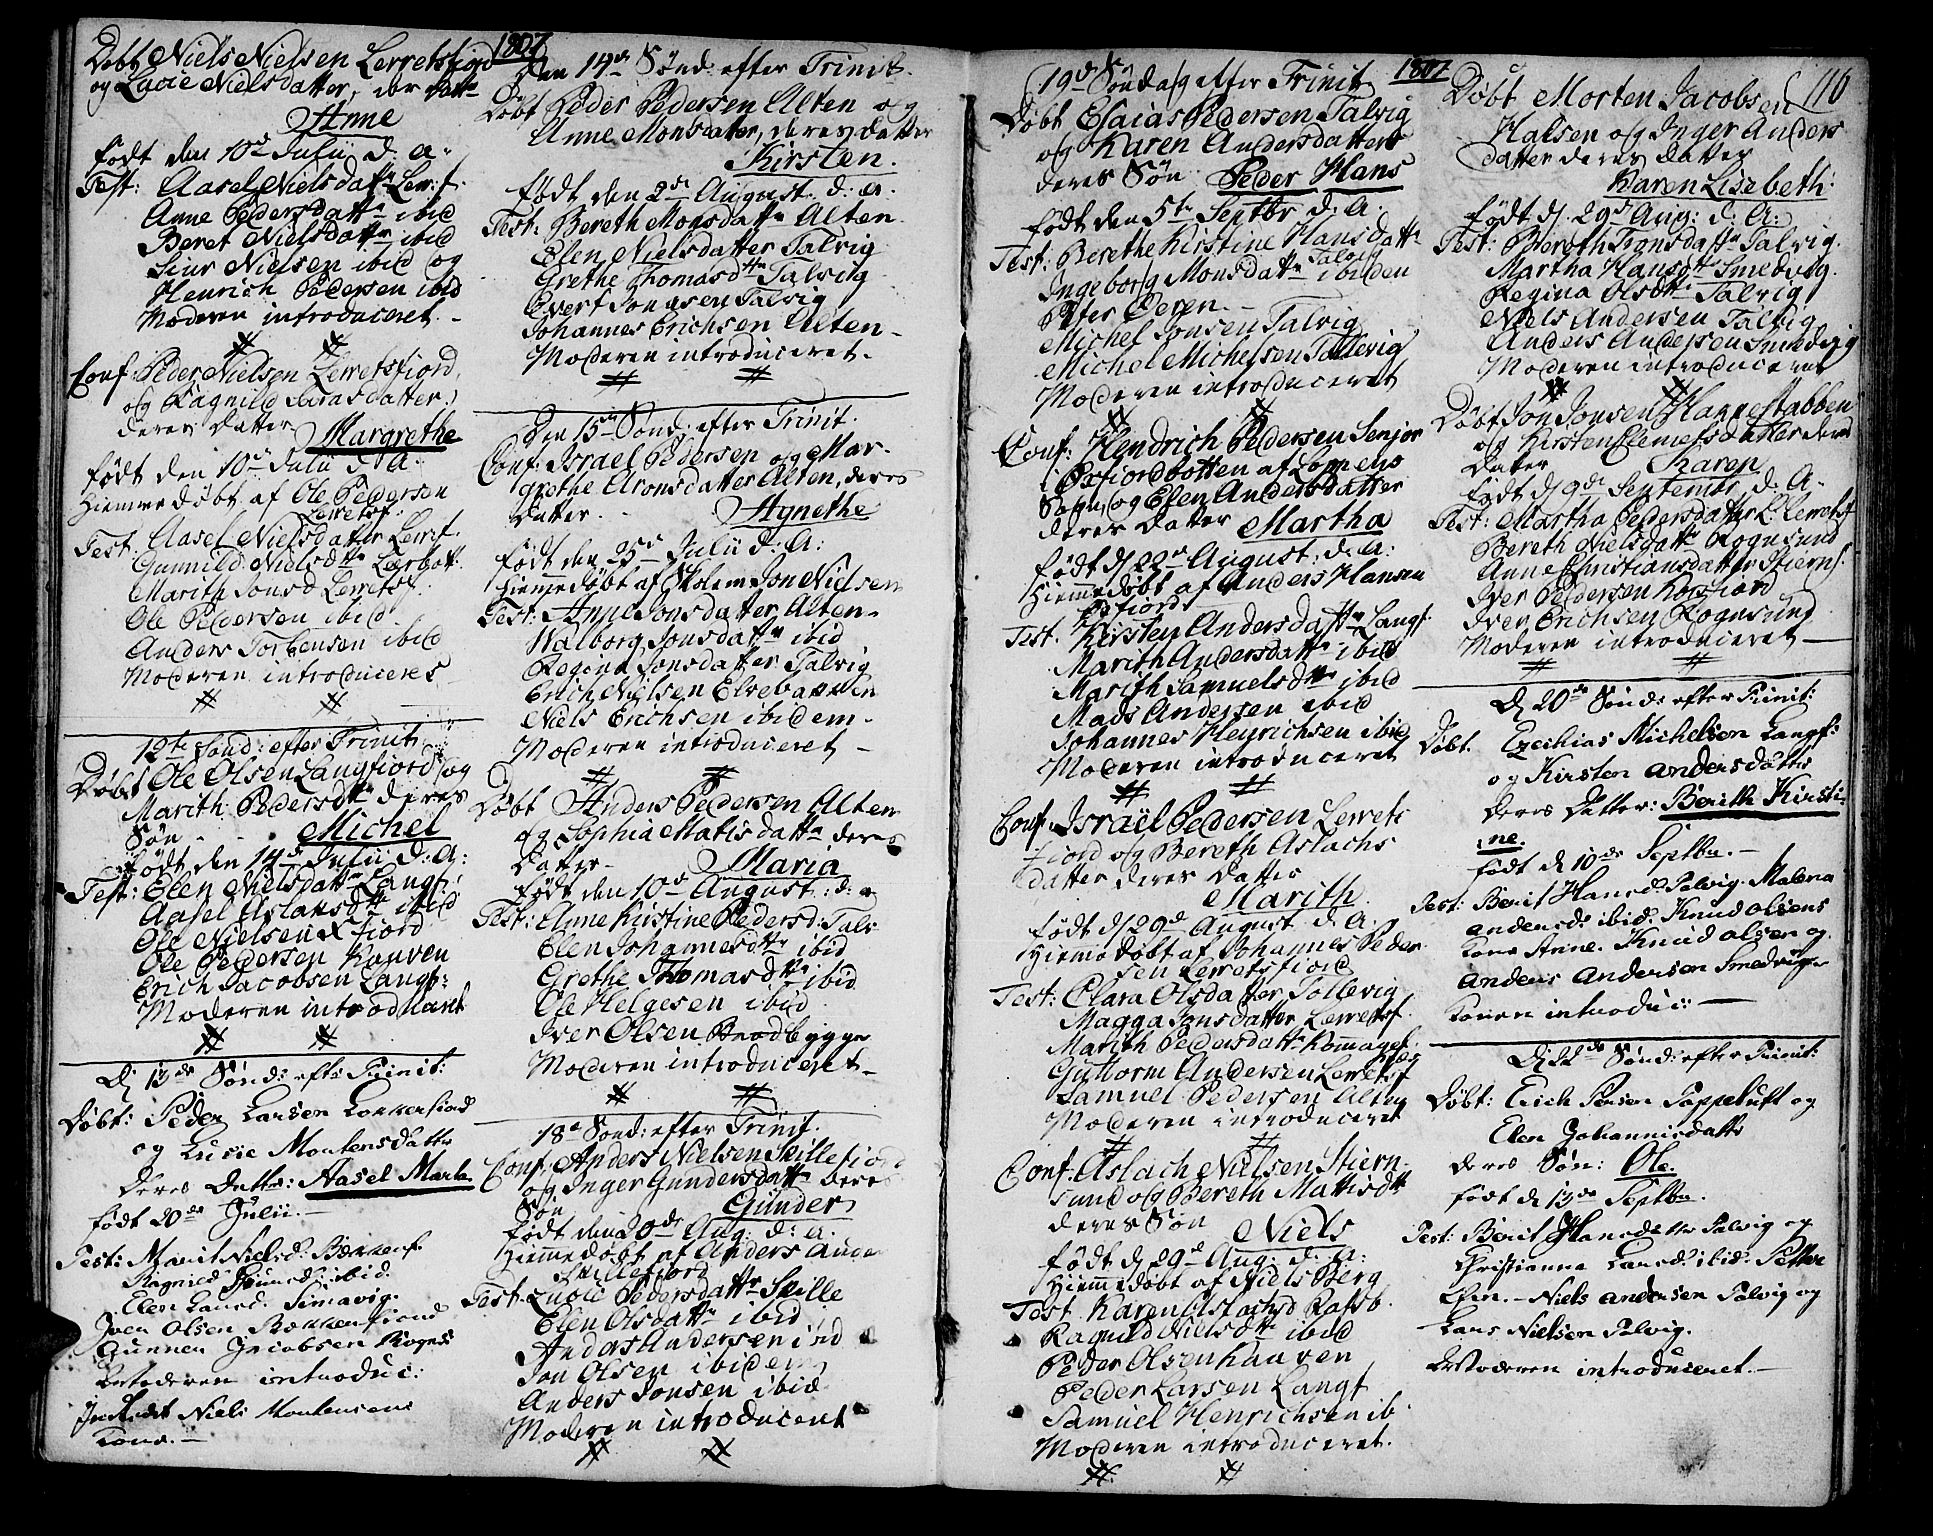 1807
Døbt Niels Nielsen Lerretsfiord
og Lucie Nielsdatter, der Datt
Anne
født den 10de Julii d. a.
Test: Aasel Nielsdatr Lerf.
Anne Pedersdattr ibid
Beret Nielsdattr ibid
Siur Nielsen ibid og
Henrich Pedersen ibid
Moderen introduceret.
Conf. Peder Nielsen Lerretsfiord,
og Ragnild datter
deres Datter Margrethe
født den 10de Julii d. A.
Hiemme døbt af Ole Pedersen
Lerretsf.
Test. Aasel Nielsdatter Lerf.
Gunnild Nielsdttr Lerbot.
Marith Jonsd Lerretsf.
Ole Pedersen ibid
Anders Torbensen ibid
Moderen introduceres
12te Sønd: efter Trinit.
Døbt Ole Olsen Langfiord og
Marith Pedersdttr deres
Søn - Michel
født den 14de Julii d: A:
Test: Elen Nielsdattr Langf.
Aasel Aslaksdttr ibid
Ole Nielsen fiord
Ole Pedersen Kaaven
Erich Jacobsen Langf:
Moderen introduceret
D 13de Sønd: eftr Trinit:
Døbt: Peder Larsen Lokkerfiord
og Lucie Mortensdattr
deres Datter: Aasel Marta.
født 20de Julii. -
Test: Marit Nielsd: Bekkerf.
Ragnild ibid.
Elen Larsd. Simavig.
Iver Olsen Bekkerfiord
Gunner Jacobsen Rogns
Moderen introduc:
Indledt Niels Mortensens
Kone. -
Den 14de Sønd: efter Trinit.
Døbt Peder Pedersen Alten og
Anne Monsdatter, deres Datter
Kirsten.
født den 2de August d: a.
Test: Bereth Monsdattr Alten.
Elen Nielsdatter Talvig
Grethe Thomasdttr Talvig
Evert Jonasen Talvig
Johannes Erichsen Alten -
Moderen introduceret.
Den 15de Sønd: efter Trinit.
Conf: Israel Pedersen og Mar-
grethe Aronsdatter Alten, deres
Datter. Agnethe
født den 25de Julii d: A:
Hiemmedøbt af Skolem Jon Nielsen
Test: Anne Jonsdatter Alten -
Walborg Jonsdattr ibid
Regine Jonsdatter Talvig
Erich Nielsen Elvebakken
Niels Erichsen ibidem -
Moderen introduceret -
Døbt Anders Pedersen Alten
og Sophia Matisdattr deres
Datter - Maria
født den 10de August d: a
Test: Anne Kirstine Pedersd: Talv
Elen Johannesdttr ibid
Grethe Thomasdttr ibid
Ole Helgesen ibid
Iver Olsen Bradbygge
Moderen introduceret -
18de Sønd: efter Trinit.
Conf. Anders Nielsen Skillefiord
og Inger Gundersdattr deres
Søn Günder
født den 20de Aug: d: a.
Hiemmedøbt af Anders Ande
Skillefiord
Test. Lucie Pedersdattr Skille
Elen Olsdattr ibid
Anders Andersen ibid
Jon Olsen ibidem
Anders Jonsen ibid
Moderen introduceret
1807
19de Søndag efter Trinit
Døbt Esaias Pedersen Talvig
og Karen Andersdatters
deres Søn Peder Hans
født den 5te Septbr d: A.
Test: Berethe Kirstine Hansdattr
Talvig
Ingeborg Monsdattr ibiden
Peter Veren. -
Michel Jonsen Talvig
Michel Michelsen Tallevig
Moderen introduceret
Conf: Hendrich Pedersen Senjor
i Øxfiordbotten af Loppens
Sogn, og Elen Andersdatter
deres Datter Martha
født d 22de August: d: a:
Hiemmedøbt af Anders Hansen
Øxfiord
Test. Kirsten Andersdattr Langf.
Marith Andersdattr ibid
Marith Samuelsdttr ibid
Mads Andersen ibid
Johannes Heyrichsen ibid
Moderen introduceret
Conf. Israel Pedersen Lerrets
fiord og Bereth Aslachs
datter deres Datter
Marith.
født d 29de August d. A.
Hiemedøbt af Johannes Peder
sen Lerretsfiord
Test: Clara Olsdatter Tollevig
Magga Jonsdatter Lerretsf.
Marith Pedersdattr Komagef.
Guttorm Andersen Lerretsf
Samuel Pedersen Alten
Moderen introduceret
Conf. Aslach Nielsen Stiern
sund og Bereth Mattisdttr
deres Søn Niels
født d 29de Aug: d: a:
Hiemmedøbt af Niels Berg
Test. Karen Aslachsd Rafsb.
Ragnild Nielsdttr ibid
Peder Olsen Kaaven
Peder Larsen Langf
Samuel Henrichsen ib.
Moderen introduceret.
116
Døbt Morten Jacobsen
Halsen og Inger Anders
datter deres Datter
Karen Lisebeth:
født d. 29de Aug: d: A:
Test: Bereth Tronsdattr Talvig.
Martha Hansdttr Smedvig.
Regina Olsdttr Talvig
Niels Andersen Talvig
Anders Andersen Smedvig
Moderen introduceret
Døbt Jon Jonsen Hannestabben
og Kirsten Clemetsdatter deres
Dater Karen
født d 9de Septembr d: A.
Test: Martha Pedersdatter L. Lerretsf
Bereth Nielsdattr Rognsund
Anne Christiansdatter Stiern:
Iver Pedersen Korsfiord
Iver Erichsen Rognsund
Moderen introduceret
D 20de Sønd: efter Trinit:
Døbt. Ezechias Michelsen Langf:
og Kirsten Andersdattr
deres Datter: Berith Kirsti-
ne.
født d 10de Septbr. -
Test: Berit Hansd. Talvig. Malena
Andersd: ibid. Knud Olsens
Kone Anne. Knud Olsen og
Anders Andersen Smedvig
Konen introduc: -
D 22de Sønd: efter Trinit:
Døbt: Erich Persen Pappeluft og
Elen Johannisdattr
deres Søn: Ole.
født d 13de Septbr.
Test: Berit Hansdattr Talvig og
Christianna Larsd. ibid. Petter
. - Niels Andersen Talvig og
Lars Nielsen Talvig.
Moderen introduceret. -